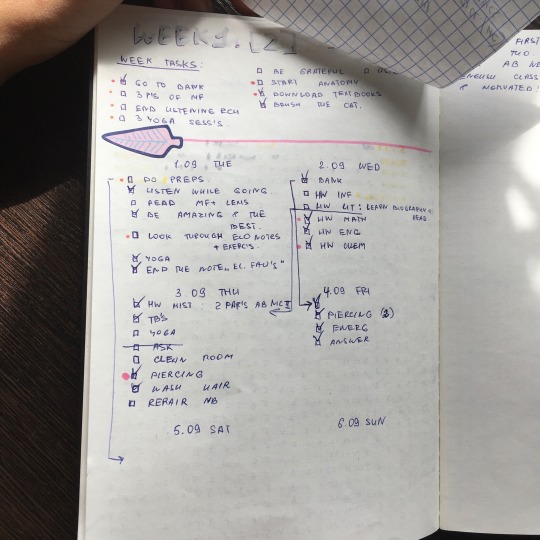 WEEK 1. [2]
WEEK TASKS:
GO TO BANK
3 P'S OF NF
END LISTENING ECH
3 YOGA SESS'S.
BE GRATEFUL
START ANATOMY
DOWNLOAD TEXTBOOKS
BRUSH THE CAT.
FIRST
TWO
AB NE
ENGLISH CLASS
1.09 TUE
DO PREPS.
LISTEN WHILE GOING
READ MF+ LENS
BE AMAZING & THE
BEST.
LOOK THROUGH ECO NOTES
+ EXERC'S.
YOGA
END THE NOTE „EL. FAU'S"
2.09 WED
BANK
HW INF
HW LIT: LEARN BIOGRAPHY +
READ
HW MATH
HW ENG
HW CHEM
3.09 THU
HW HIST: 2 PAR'S AB NLT
TB'S
YOGA
ASK
CLEAN ROOM
PIERCING
WASH HAIR
REPAIR NB
4.09 FRI
PIERCING (2)
ENERG
ANSWER
5.09 SAT
6.09 SUN